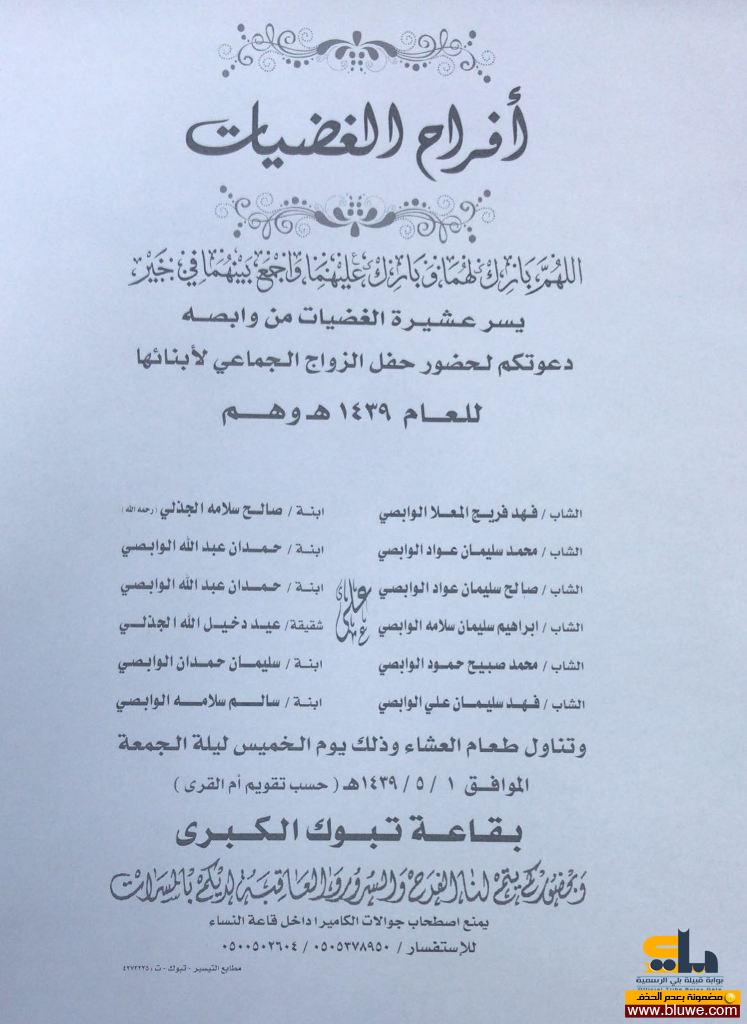 أفراح الغضيات
اللهم بارك لهما وبارك عليهما واجمع بينهما في خير
يسر عشيرة الغضيات من وابصه
دعوتكم لحضور حفل الزواج الجماعي لأبنائها
للعام ١٤٣٩ هـ وهم
الشاب / فهد فريج المعلا الوابصي ابنة / صالح سلامه الجذلي (رحمه الله)
الشاب / محمد سليمان عواد الوابصي ابنة / حمدان عبد الله الوابصي
الشاب / صالح سليمان عواد الوابصي ابنة / حمدان عبد الله الوابصي
على
الشاب / ابراهيم سليمان سلامه الوابصي شقيقة/ عيد دخيل الله الجذلي
الشاب / محمد صبيح حمود الوابصي ابنة / سليمان حمدان الوابصي
الشاب / فهد سليمان علي الوابصي ابنة / سالم سلامه الوابصي
وتناول طعام العشاء وذلك يوم الخميس ليلة الجمعة
الموافق ١ / ٥ / ١٤٣٩هـ ( حسب تقويم أم القرى )
بقاعة تبوك الكبرى
وبحضوركم يتم لنا الفرح والسرور والعاقبة لديكم بالمسرات
يمنع اصطحاب جوالات الكاميرا داخل قاعة النساء
للإستفسار / ٠٥٠٥٣٧٨٩٥٠ / ٠٥٠٠٥٠٢٦٠٤
مطابع التيسير - تبوك - ت : ٤٢٧٢٢٣٥
بلي
بوابة قبيلة بلي الرسمية
مضمونة بعدم الحذف
www.bluwe.com